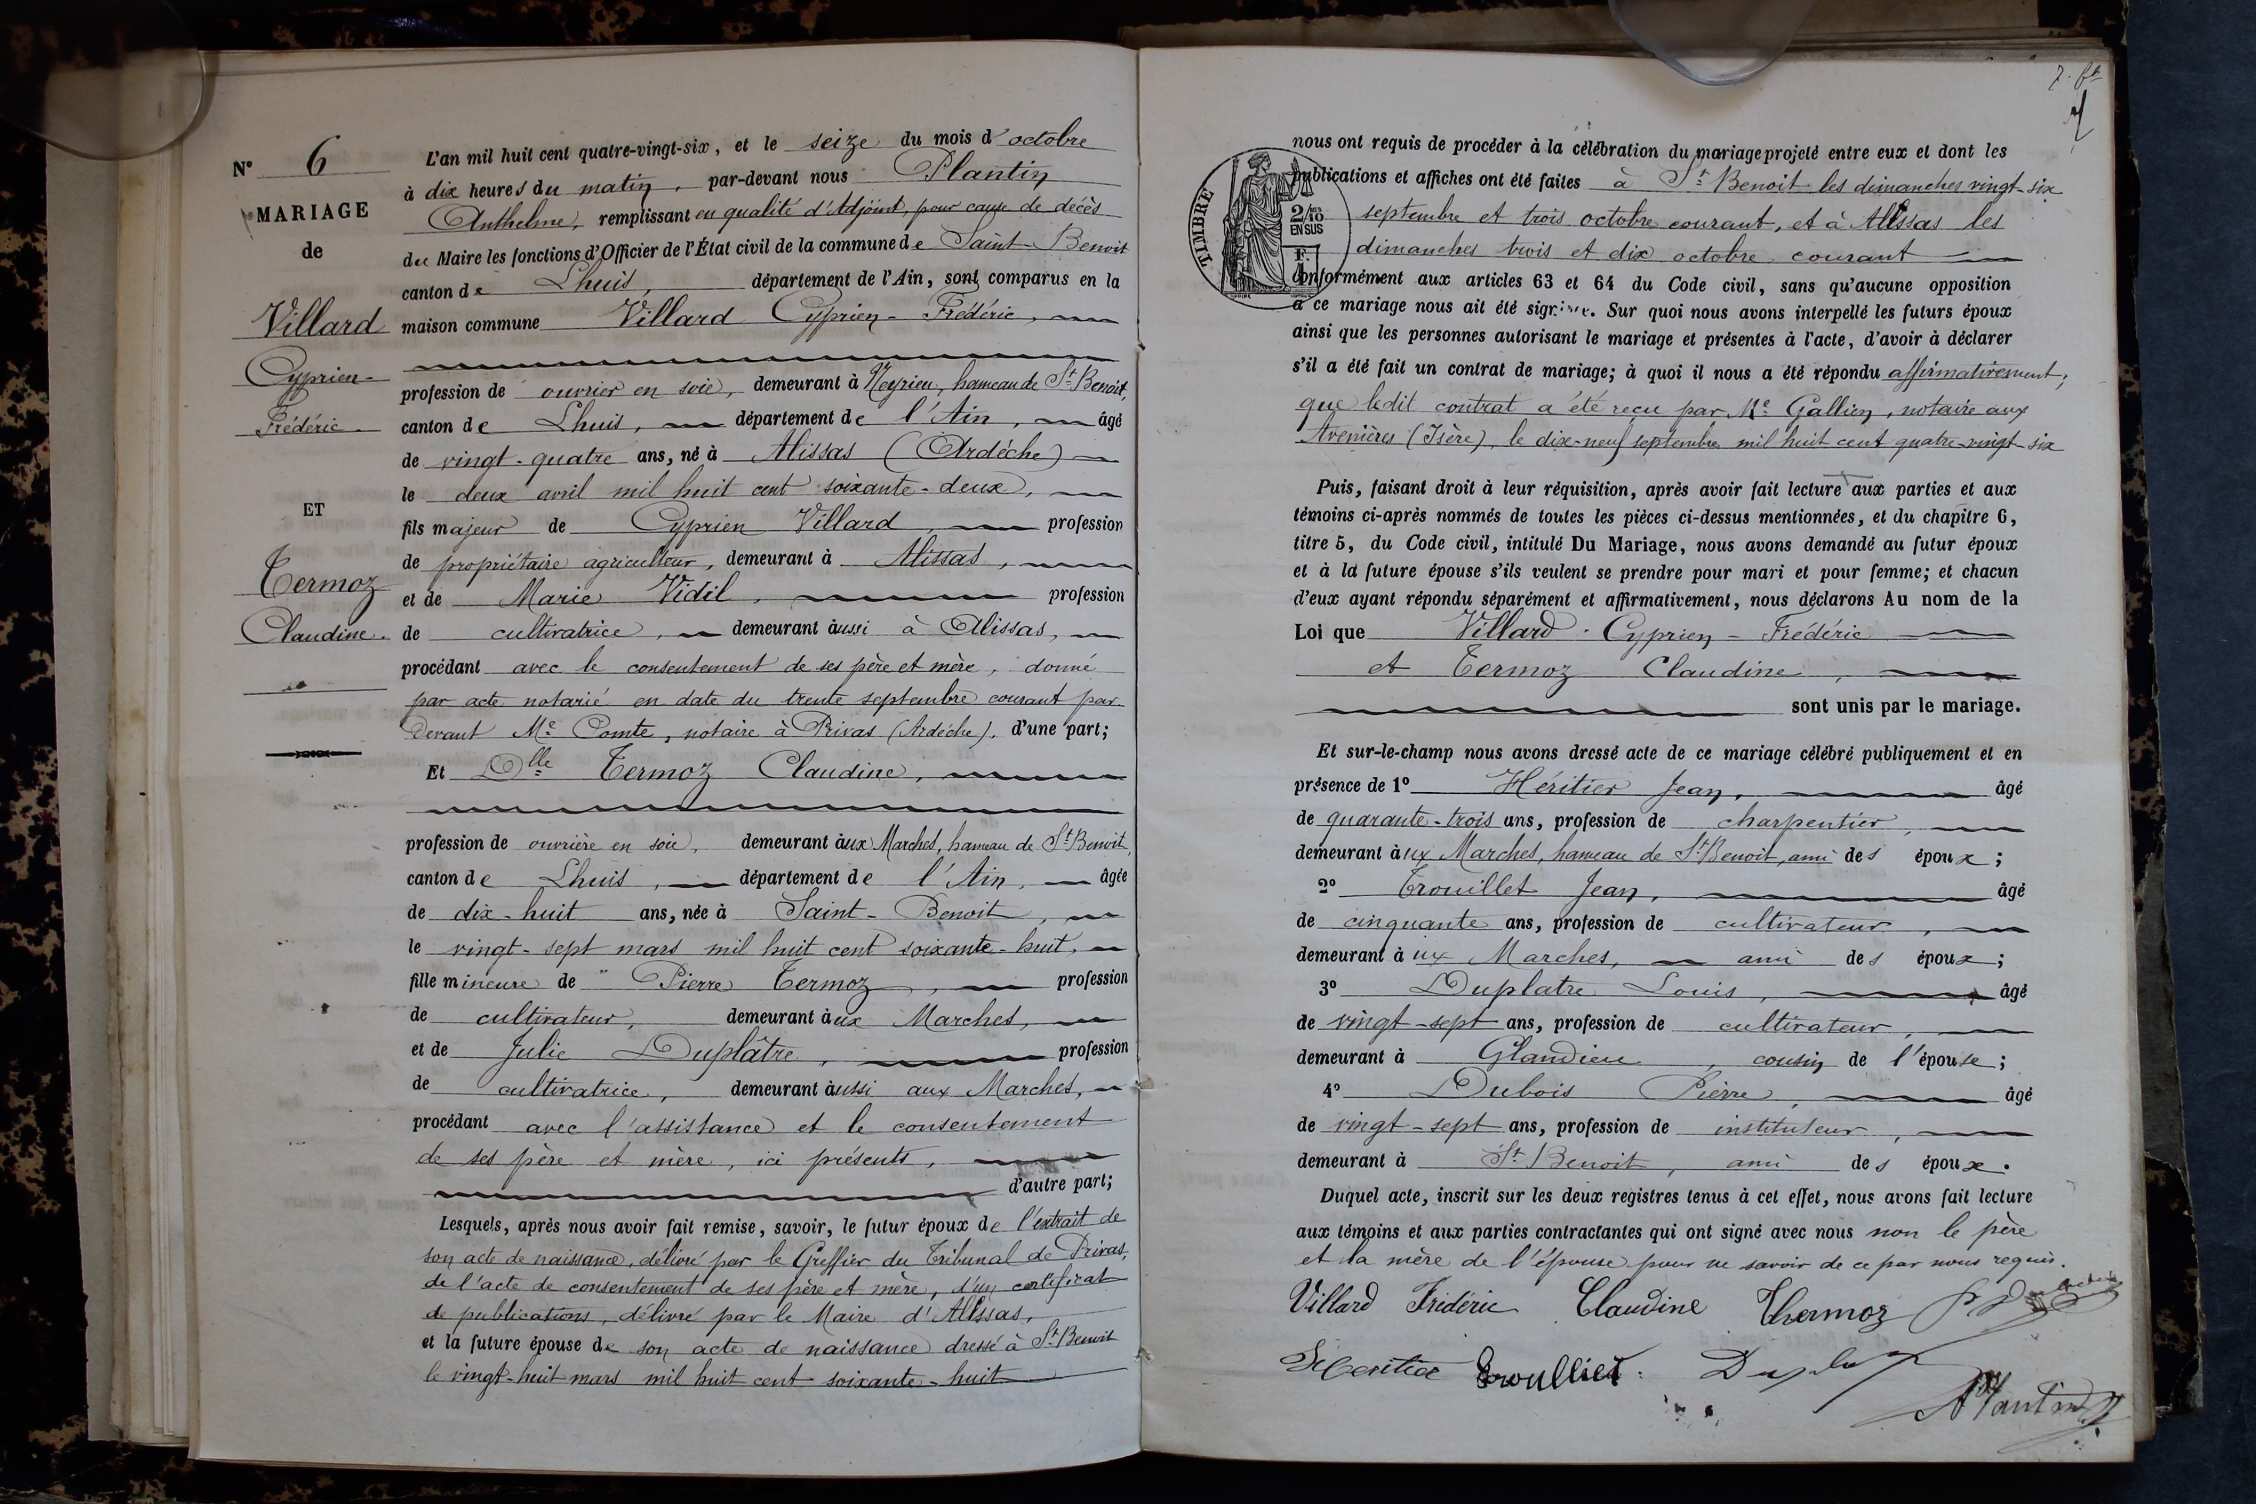 N° 6
MARIAGE
de
Villard
Cyprien-
Frédéric.
ET
Termoz
Claudine.
L'an mil huit cent quatre-vingt-six, et le seize du mois d'octobre
à dix heures du matin, par-devant nous Plantin
Anthelme, remplissant en qualité d'Adjoint, pour cause de décès
du Maire les fonctions d'Officier de l'État civil de la commune de Saint-Benoit
canton de Lhuis, département de l'Ain, sont comparus en la
maison commune Villard Cyprien-Frédéric,
profession de ouvrier en soie, demeurant à Neyrieu, hameau de St Benoit,
canton de Lhuis, département de l'Ain, âgé
de vingt-quatre ans, né à Alissas (Ardèche)
le deux avril mil huit cent soixante-deux,
fils majeur de Cyprien Villard, profession
de propriétaire agriculteur, demeurant à Alissas,
et de Marie Vidil, profession
de cultivatrice, demeurant aussi à Alissas,
procédant avec le consentement de ses père et mère, donné
par acte notarié en date du trente septembre courant par
devant Me Comte, notaire à Privas (Ardèche), d'une part;
Et Dlle Termoz Claudine,
profession de ouvrière en soie, demeurant aux Marches, hameau de St Benoit,
canton de Lhuis, département de l'Ain, âgée
de dix-huit ans, née à Saint-Benoit,
le vingt-sept mars mil huit cent soixante-huit,
fille mineure de Pierre Termoz, profession
de cultivateur, demeurant aux Marches,
et de Julie Duplâtre, profession
de cultivatrice, demeurant aussi aux Marches,
procédant avec l'assistance et le consentement
de ses père et mère, ici présents,
d'autre part;
Lesquels, après nous avoir fait remise, savoir, le futur époux de l'extrait de
son acte de naissance, délivré par le Greffier du Tribunal de Privas,
de l'acte de consentement de ses père et mère, d'un certificat
de publications, délivré par le Maire d'Alissas,
et la future épouse de son acte de naissance dressé à St Benoit
le vingt-huit mars mil huit cent soixante-huit
TIMBRE
2/10 EN SUS
nous ont requis de procéder à la célébration du mariage projeté entre eux et dont les
publications et affiches ont été faites à St Benoit les dimanches vingt-six
septembre et trois octobre courant, et à Alissas les
dimanches trois et dix octobre courant
conformément aux articles 63 et 64 du Code civil, sans qu'aucune opposition
à ce mariage nous ait été signifiée. Sur quoi nous avons interpellé les futurs époux
ainsi que les personnes autorisant le mariage et présentes à l'acte, d'avoir à déclarer
s'il a été fait un contrat de mariage; à quoi il nous a été répondu affirmativement;
que ledit contrat a été reçu par Me Gallien, notaire aux
Avenières (Isère), le dix-neuf septembre mil huit cent quatre-vingt-six
Puis, faisant droit à leur réquisition, après avoir fait lecture aux parties et aux
témoins ci-après nommés de toutes les pièces ci-dessus mentionnées, et du chapitre 6,
titre 5, du Code civil, intitulé Du Mariage, nous avons demandé au futur époux
et à la future épouse s'ils veulent se prendre pour mari et pour femme; et chacun
d'eux ayant répondu séparément et affirmativement, nous déclarons Au nom de la
Loi que Villard Cyprien-Frédéric
et Termoz Claudine,
sont unis par le mariage.
Et sur-le-champ nous avons dressé acte de ce mariage célébré publiquement et en
présence de 1° Héritier Jean, âgé
de quarante-trois ans, profession de charpentier,
demeurant aux Marches, hameau de St Benoit, ami des époux;
2° Trouillet Jean, âgé
de cinquante ans, profession de cultivateur,
demeurant aux Marches, ami des époux;
3° Duplatre Louis, âgé
de vingt-sept ans, profession de cultivateur,
demeurant à Glandieu, cousin de l'épouse;
4° Dubois Pierre, âgé
de vingt-sept ans, profession de instituteur,
demeurant à St Benoit, ami des époux.
Duquel acte, inscrit sur les deux registres tenus à cet effet, nous avons fait lecture
aux témoins et aux parties contractantes qui ont signé avec nous non le père
et la mère de l'épouse pour ne savoir de ce par nous requis.
Villard Frédéric Claudine Thermoz
Heritier Troulliet Duplatre
Plantin